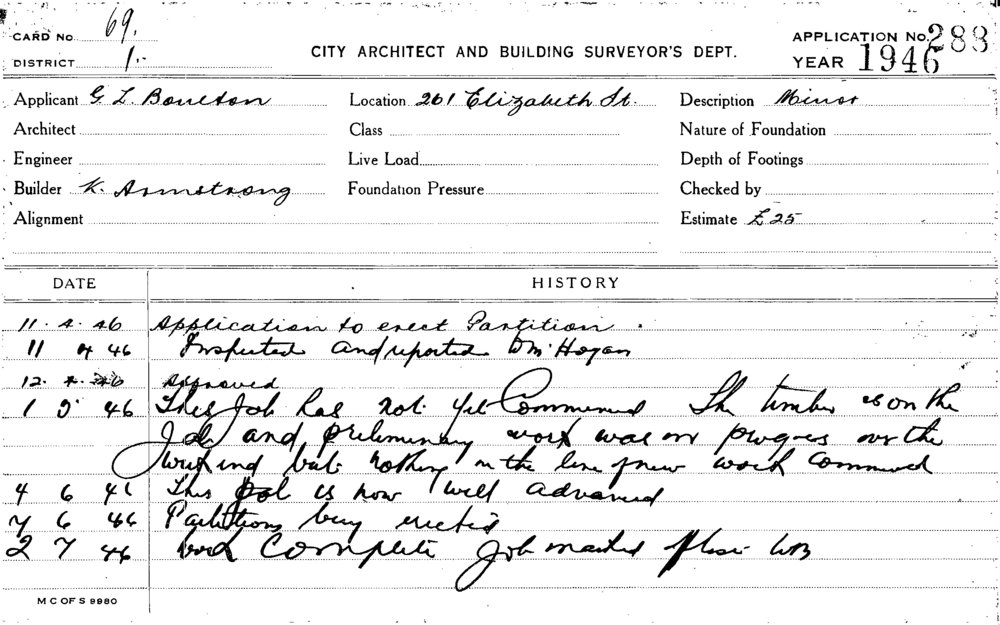 CARD No 69.
DISTRICT 1.
CITY ARCHITECT AND BUILDING SURVEYOR'S DEPT.
APPLICATION No. 288
YEAR 1946
Applicant G L Boulton Location 261 Elizabeth St. Description Minor
Architect Class Nature of Foundation
Engineer Live Load Depth of Footings
Builder K. Armstrong Foundation Pressure Checked by
Alignment Estimate £25
DATE HISTORY
11. 4. 46 Application to erect Partition.
11 4 46 Inspected and reported Hogan
12. 4. 46 Approved
1 5 46 This Job has not yet Commenced The timber is on the
Job and preliminary work was in progress over the
weekend but nothing in the line of new work commenced
4 6 46 This Job is now well advanced
7 6 46 Partitions being erected
2 7 46 Work Complete Job marked
M C OF S 9980